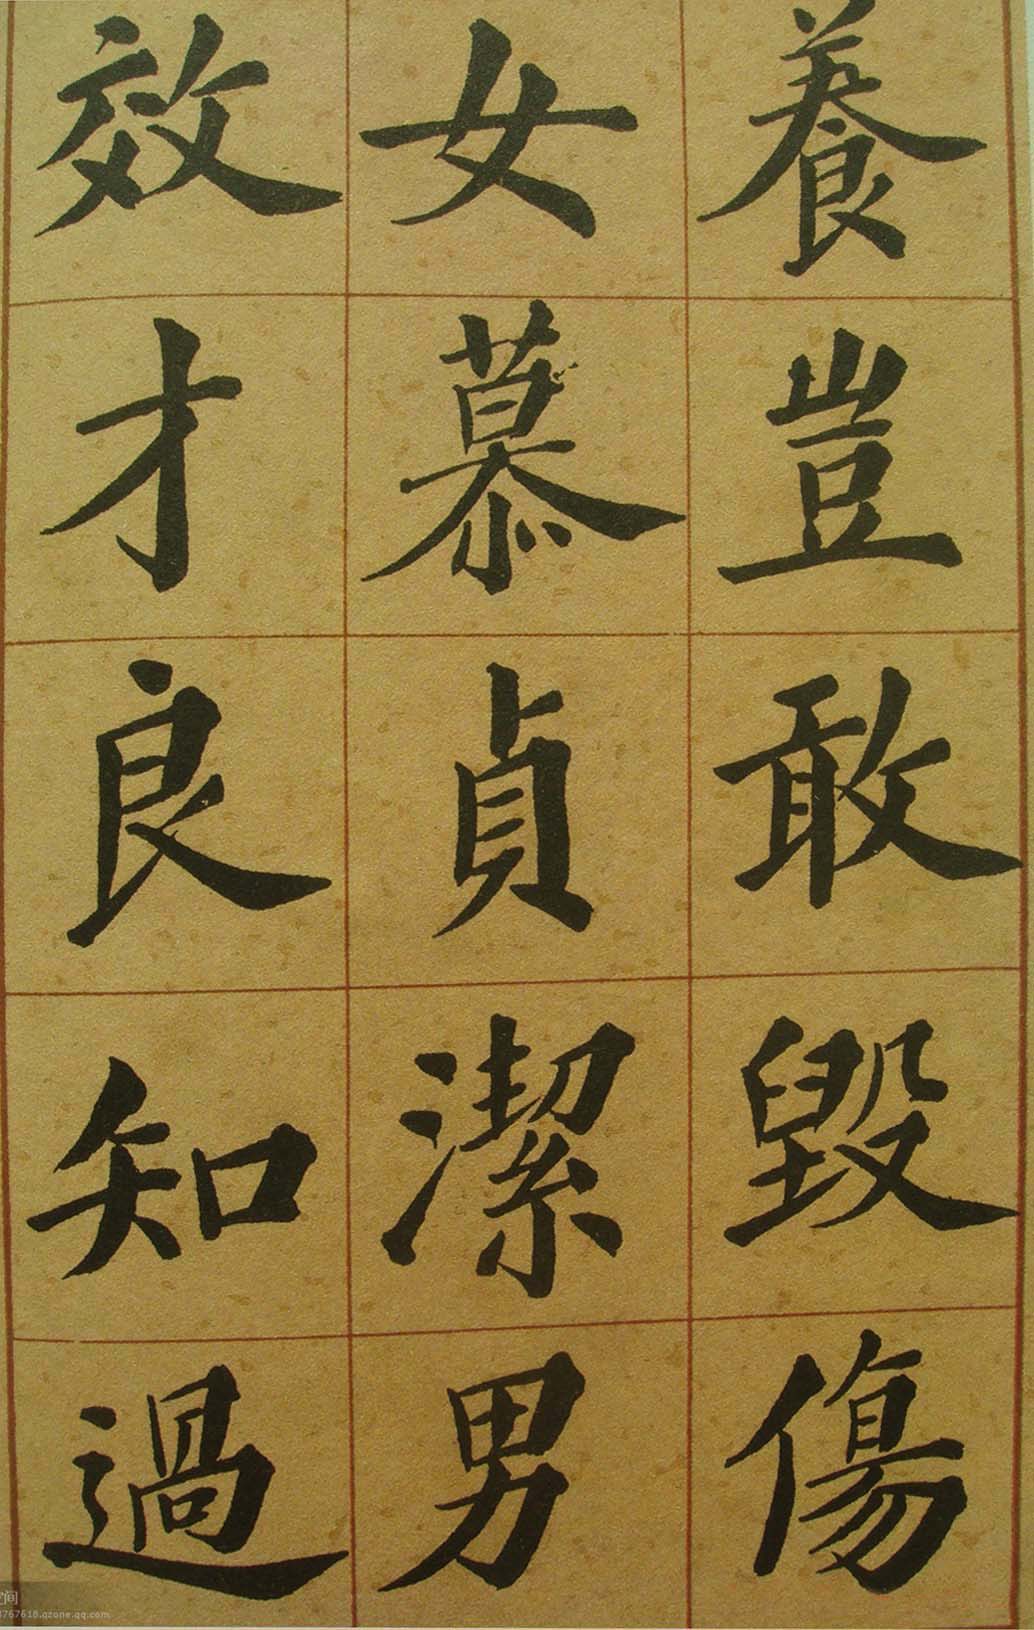 養豈敢毀傷
女慕貞潔男
效才良知過
空间
3767618.qzone.qq.com